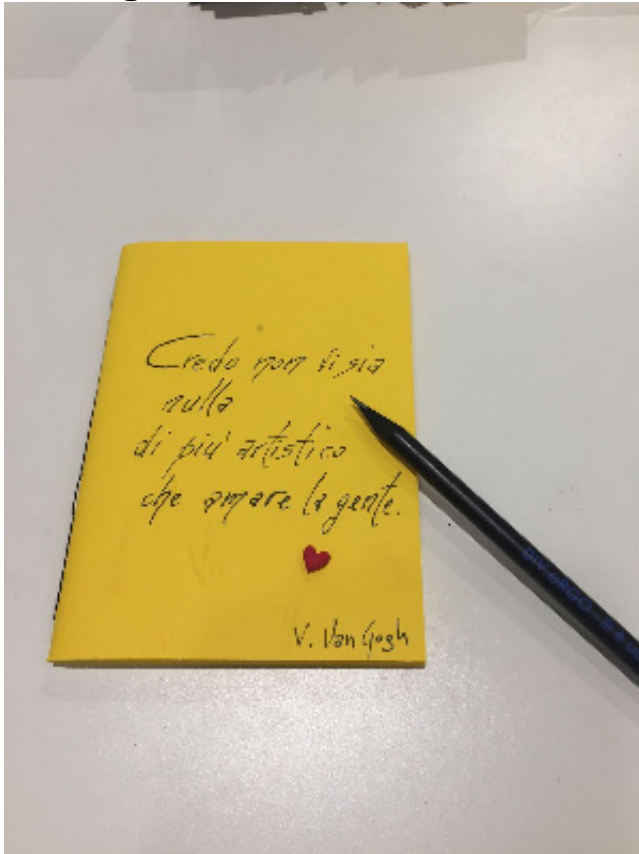 Credo non vi sia
nulla
di piu' artistico
che amare la gente.
V. Van Gogh